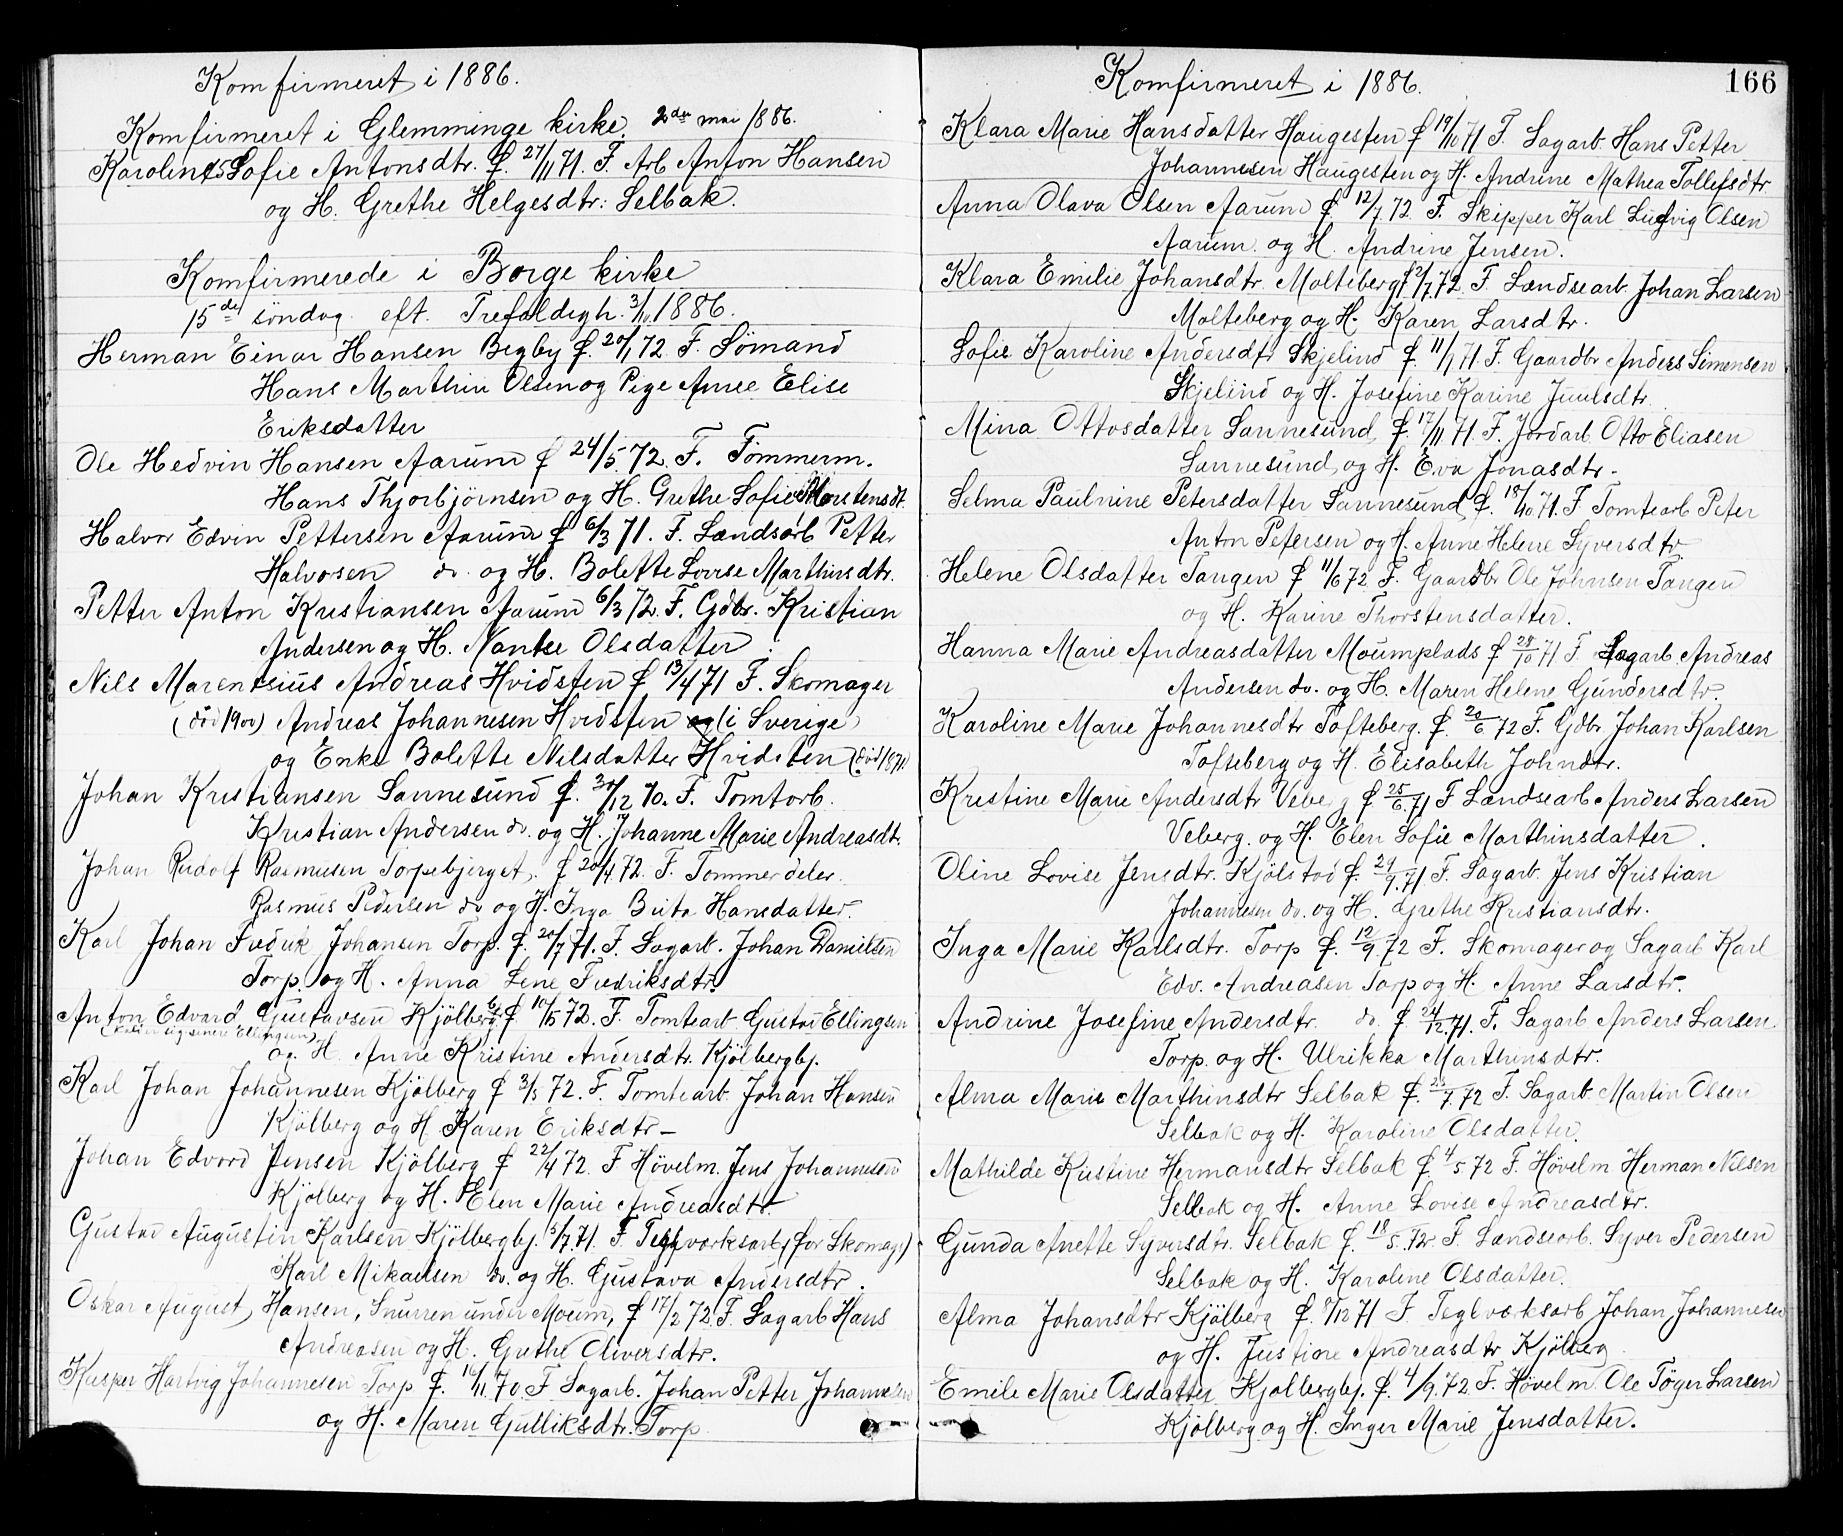 Komfirmeret i 1886.
Komfirmeret i Glemminge kirke. 2den mai 1886.
Sofie Antonsdtr. f. 27/11 71. F. Arb Anton Hansen
og H. Grethe Helgesdtr: Selbak.
Komfirmerede i Borge kirke
15de søndag eft. Trefoldigh. 3/10 1886.
Herman Einar Hansen Begby f. 20/1 72. F. Sömand
Hans Marthin Olsen og Pige Anne Elise
Eriksdatter
Ole Hedvin Hansen Aarum f 24/5 72. F. Tömmerm.
Hans Thjorbjörnsen og H. Grethe Sofie Mortensdt.
Halvor Edvin Pettersen Aarum f 6/3 71. F. Landsarb Petter
Halvorsen do. og H. Bolette Lovise Marthinsdtr.
Petter Anton Kristiansen Aarum 6/3 72. F. Gdbr. Kristian
Andersen og H. Olsdatter
Nils Andreas Hvidsten f 13/4 71 F. Skomager
(död 1900) Andreas Johannesen Hvidsten (i Sverige)
og Enke Bolette Nilsdatter Hvidsten
Johan Kristiansen Sannesund f. 30/12 70. F. Tomtarb.
Kristian Andersen do. og H. Johanne Marie Andreasdt.
Johan Rudolf Rasmusen Torpebjerget. f 20/4 72. F. Tommerdeler
Rasmus Pedersen do og H. Inga Brita Hansdatter.
Karl Johan Fredrik Johansen Torp. f. 20/7 71. F. Sagarb. Johan Danielsen
Torp. og H. Anna Lene Fredriksdtr.
Anton Edvard Gustavsen Kjölbergby f 10/5 72. F. Tomtearb Gustav Ellingsen
(kalder sig senere Ellingsen)
og H. Anne Kristine Andersdtr. Kjölbergby.
Karl Johan Johannesen Kjölberg f 3/5 72. F. Tomtearb Johan Hansen
Kjölberg og H Karen Eriksdtr —
Johan Edvard Jensen Kjölberg f 22/4 72. F Hövelm. Jens Johannesen
Kjölberg og H. Elen Marie Andreasdtr.
Gustav Augustin Karlsen Kjölbergby. 5/7 71. F Teglværksarb. (för Skomag.)
Karl Mikaelsen do. og H. Gustava Andersdtr.
Oskar August Hansen, Snurren under Moum, f 17/2 72. F. Sagarb Hans
Andreasen og H. Grethe Oliversdtr.
Kasper Hartvig Johannesen Torp f. 16/11 70 F Sagarb. Johan Petter Johannesen
og H. Maren Gulliksdtr. Torp
Komfirmeret i 1886. 166
Klara Marie Hansdatter Haugesten f 19/10 71 F. Sagarb Hans Petter
Johannesen Haugesten og H. Andrine Mathea Tollefsdtr
Anna Olava Olsen Aarum f 12/7 72. F. Skipper Karl Ludvig Olsen
Aarum og H. Andrine Jensen.
Klara Emilie Johansdtr. Molteberg f 2/7 72. F. Landsearb Johan Larsen
Molteberg og H. Karen Larsdtr.
Sofie Karoline Andersdtr Skjelind f. 11/1 71. F. Gaardbr Anders Simensen
Skjelind og H. Josefine Karine Juulsdtr.
Mina Ottosdatter Sannesund f. 17/11 71. F. Jordarb Otto Eliasen
Sannesund og H. Eva Jonasdtr.
Selma Paulnine Petersdatter Sannesund f. 18/10 71. F Tomtearb Peter
Anton Petersen og H. Anne Helene Syversdtr
Helene Olsdatter Tangen f 11/6 72 F. Gaardbr Ole Johnsen Tangen
og H. Karine Thorstensdatter.
Hanna Marie Andreasdatter Moumplads f 28/10 71 F Sagarb. Andreas
Andersen do. og H. Maren Helene Gundersdtr.
Karoline Marie Johannesdtr Tofteberg. f. 20/6 72 F. Gdbr Johan Karlsen
Tofteberg og H. Elisabeth Johndtr.
Kristine Marie Andersdtr Veberg f 25/6. 71 F Landsearb Anders Larsen
Veberg. og H. Elen Sofie Marthinsdatter.
Oline Lovise Jensdtr. Kjölstad f. 29/9. 71 F. Sagarb. Jens Kristian
Johannesen do. og H. Grethe Kristiansdtr.
Inga Marie Karlsdtr. Torp f. 12/9 72 F. Skomager og Sagarb Karl
Edv. Andreasen Torp og H. Anne Larsdtr.
Andrine Josefine Andersdtr. do. f 24/12. 71. F. Sagarb Anders Larsen
Torp. og H. Ulrikka Marthinsdtr.
Alma Marie Marthinsdtr Selbak f. 25/7. 72 F. Sagarb Martin Olsen
Selbak og H. Karoline Olsdatter.
Mathilde Kristine Hermansdtr Selbak f 4/5 72 F. Hövelm Herman Nilsen
Selbak og H. Anne Lovise Andreasdtr.
Gunda Anette Syversdtr. Selbak f. 18/5. 72. F. Landsearb. Syver Pedersen
Selbak og H. Karoline Olsdatter.
Alma Johansdtr Kjölberg f. 9/12 71 F Teglværksarb Johan Johannesen
og H. Justine Andreasdtr Kjölberg
Emile Marie Olsdatter Kjölbergby. f. 4/9. 72. F. Hövelm Ole Töger Larsen
Kjölberg og H. Inger Marie Jensdatter.